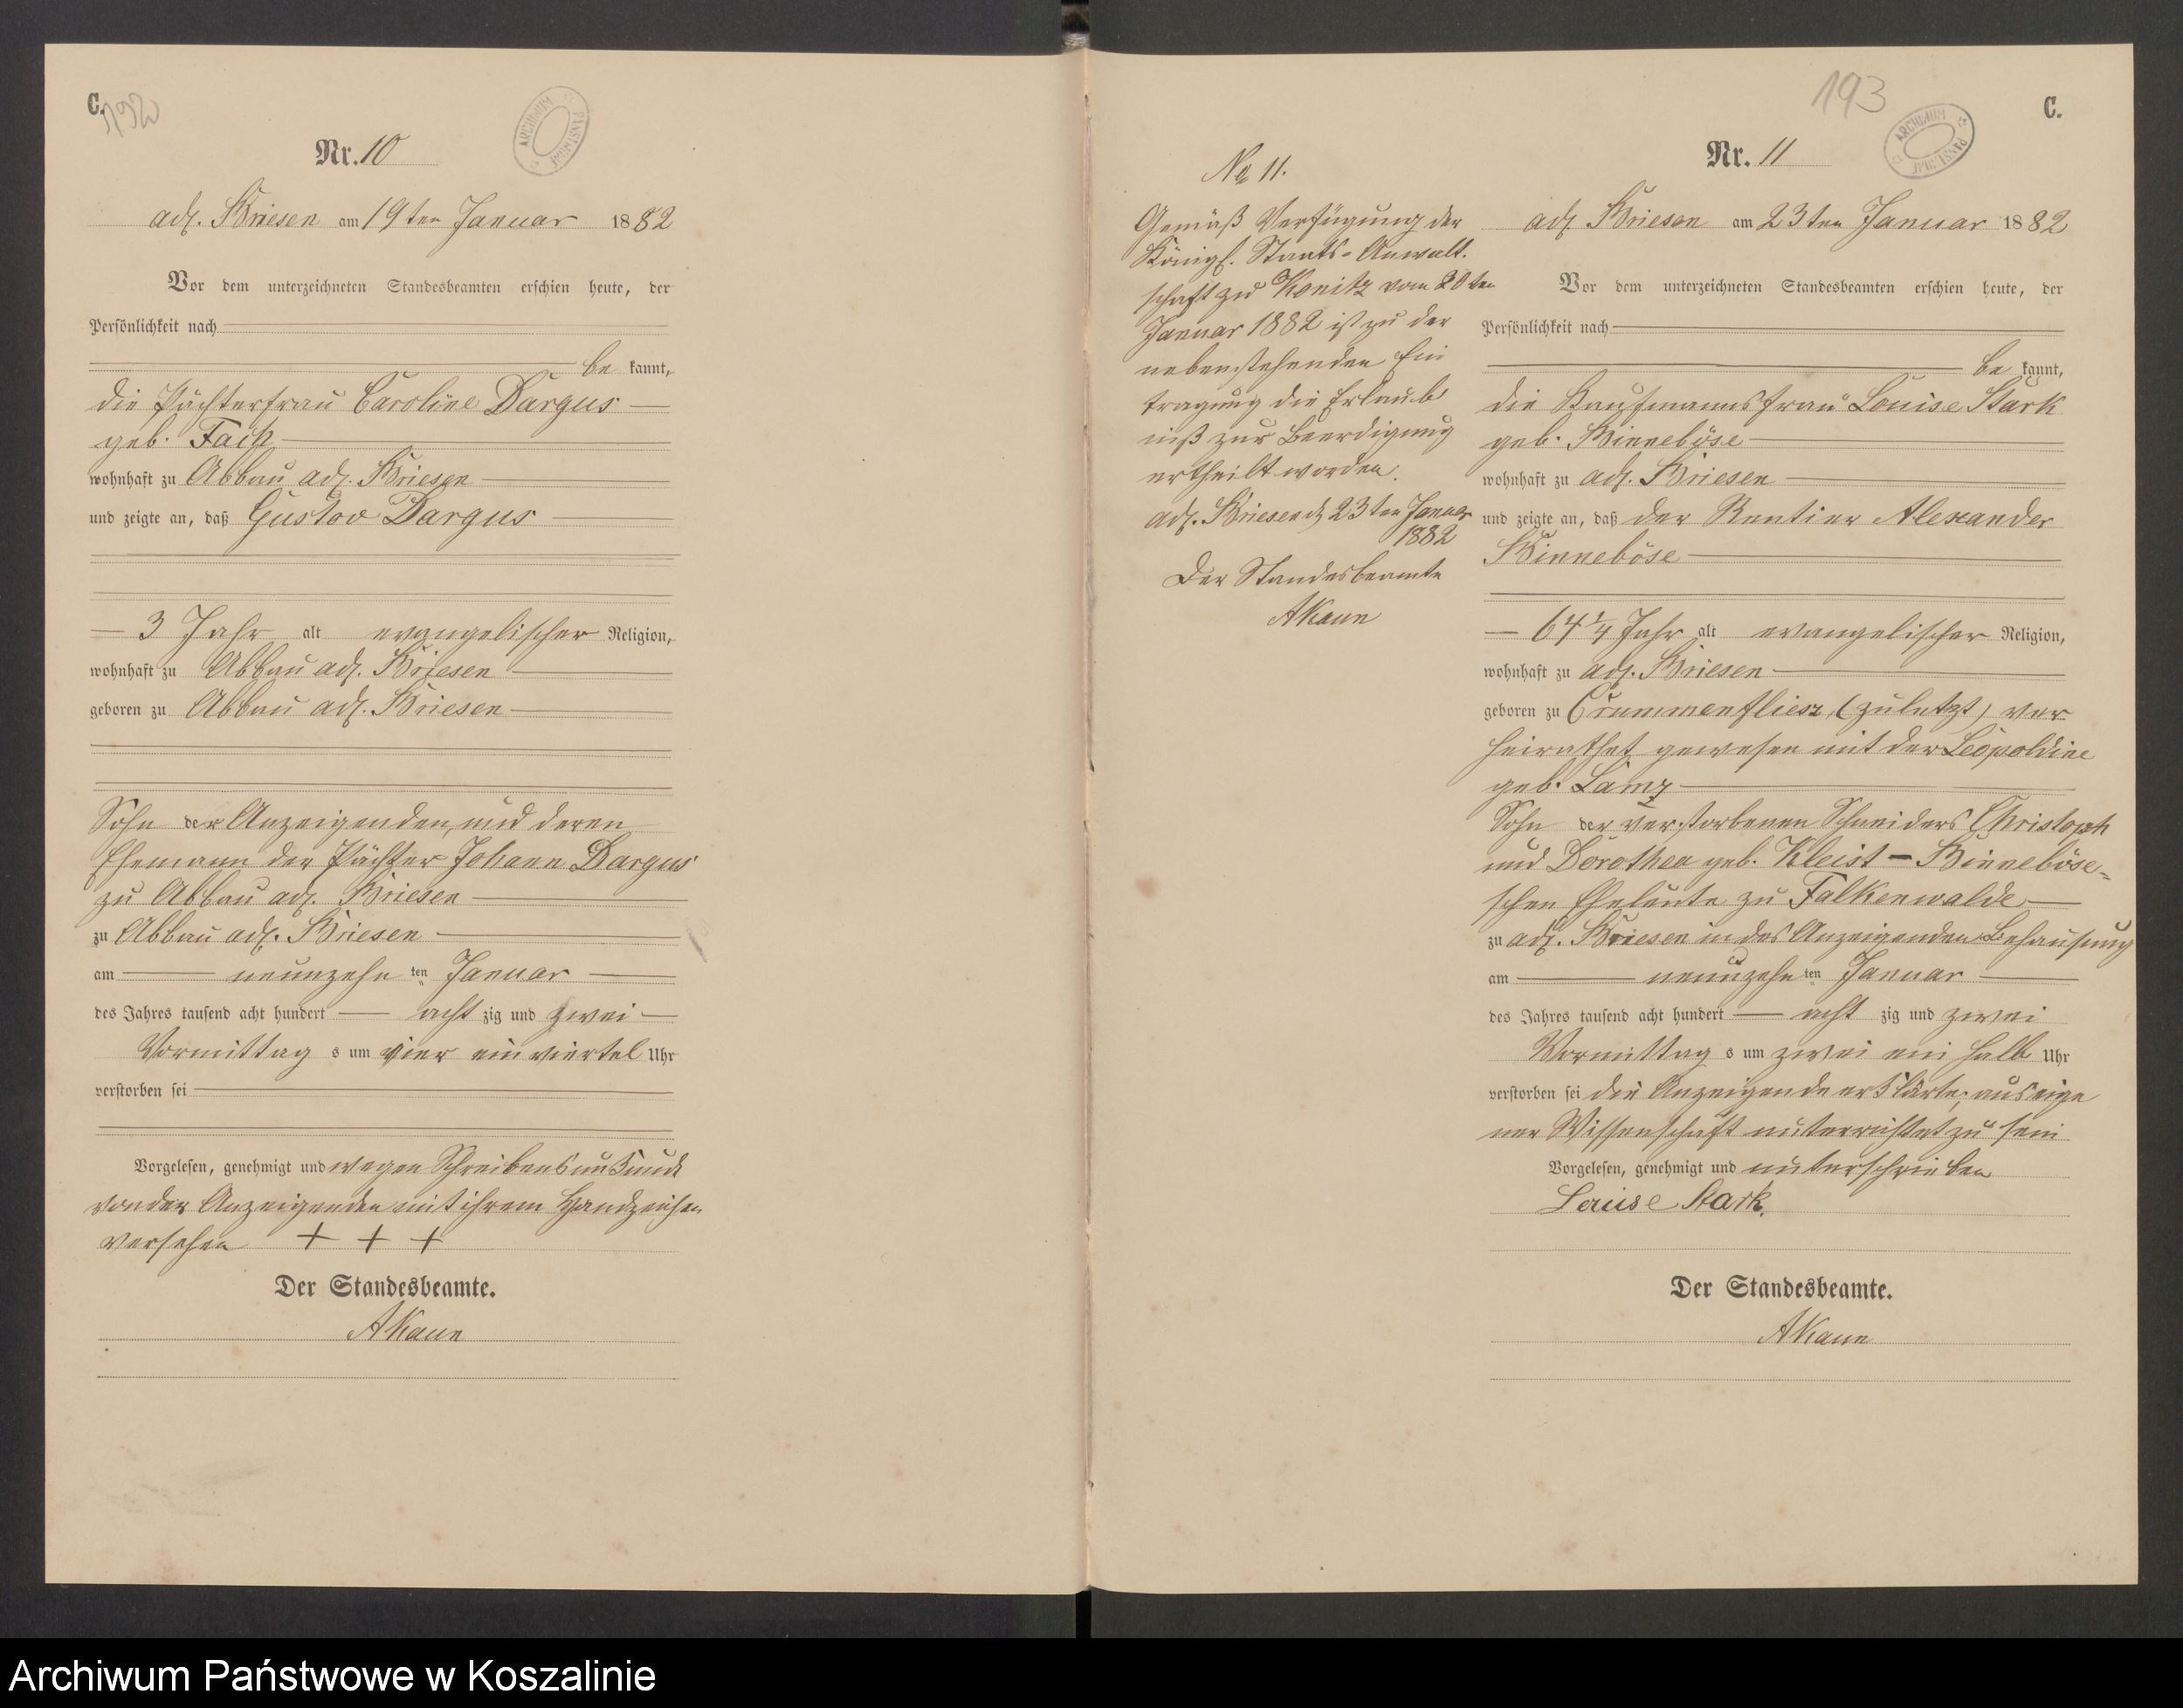 C.
192
ARCHIWUM PAŃSTWOWE
Nr. 10
adl. Briesen am 19ten Januar 1882
Vor dem unterzeichneten Standesbeamten erschien heute, der
Persönlichkeit nach
be kannt,
die Pächterfrau Caroline Dargus
geb. Fach
wohnhaft zu Abbau adl. Briesen
und zeigte an, daß Gustav Dargus
3 Jahr alt evangelischer Religion,
wohnhaft zu Abbau adl. Briesen
geboren zu Abbau adl. Briesen
Sohn der Anzeigenden, und deren
Ehemann der Pächter Johann Dargus
zu Abbau adl. Briesen
zu Abbau adl. Briesen
am neunzehn ten Januar
des Jahres tausend acht hundert acht zig und zwei
Vormittag s um vier ein viertel Uhr
verstorben sei
Vorgelesen, genehmigt und wegen Schreibensunkunde
von der Anzeigenden mit ihrem Handzeichen
versehen + + +
Der Standesbeamte.
AKaun
No 11.
Gemäß Verfügung der
Königl. Staats-Anwalt-
schaft zu Konitz vom 20ten
Januar 1882 ist zu der
nebenstehenden Ein
tragung die Erlaub
niß zur Beerdigung
ertheilt worden.
adl. Briesen d 23ten Januar
1882
Der Standesbeamte
AKaun
193
C.
ARCHIWUM PAŃSTWOWE
Nr. 11
adl. Briesen am 23ten Januar 1882
Vor dem unterzeichneten Standesbeamten erschien heute, der
Persönlichkeit nach
be kannt,
die Kaufmannsfrau Louise Stark
geb. Binneböse
wohnhaft zu adl. Briesen
und zeigte an, daß der Rentier Alexander
Binneböse
64 1/4 Jahr alt evangelischer Religion,
wohnhaft zu adl. Briesen
geboren zu Crummenfliesz, (zuletzt) ver
heirathet gewesen mit der Leopoldine
geb. Lanz
Sohn der verstorbenen Schneiders Christoph
und Dorothea geb. Kleist - Binneböse-
schen Eheleute zu Falkenwalde
zu adl. Briesen in des Anzeigenden Behausung
am neunzehn ten Januar
des Jahres tausend acht hundert acht zig und zwei
Vormittag s um zwei ein halb Uhr
verstorben sei die Anzeigende erklärte, aus eige
ner Wissenschaft unterrichtet zu sein
Vorgelesen, genehmigt und unterschrieben
Louise Stark.
Der Standesbeamte.
AKaun
Archiwum Państwowe w Koszalinie